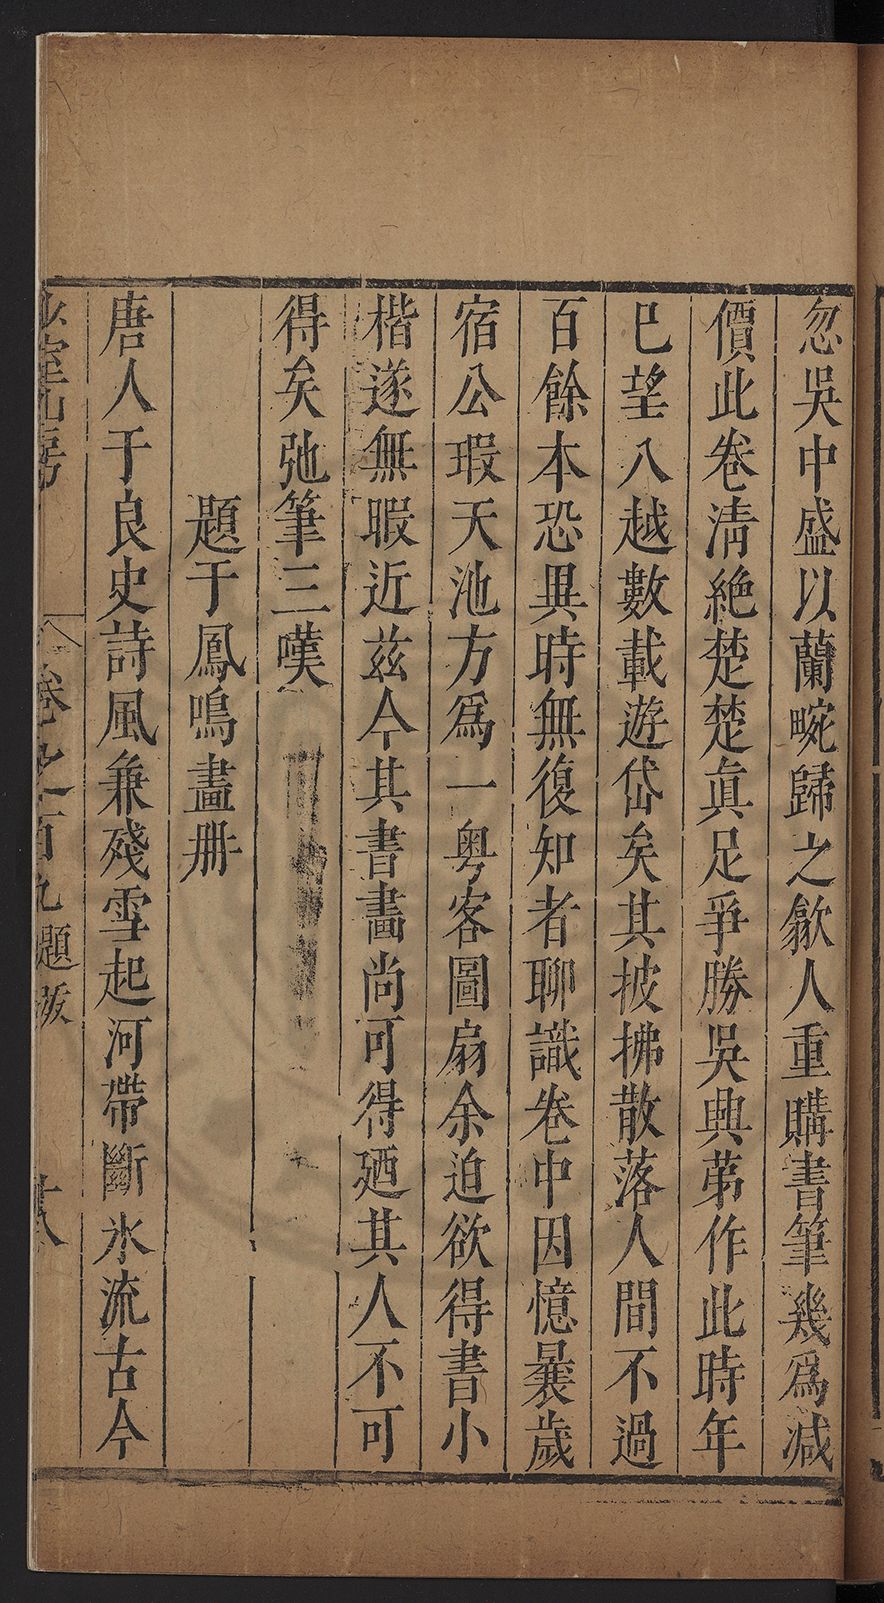 忽吳中盛以蘭畹歸之歙人重購書筆幾爲减
價此卷淸絶楚楚眞足爭勝吳興苐作此時年
已望八越數載遊岱矣其披拂散落人間不過
百餘本恐異時無復知者聊識卷中因憶曩歲
宿公瑕天池方爲一粤客圖扇余迫欲得書小
楷遂無暇近兹今其書畵尚可得廼其人不可
得矣弛筆三嘆
題于鳳鳴畵册
唐人于良史詩風兼殘雪起河帶斷氷流古今
卷之百九題跋
十八